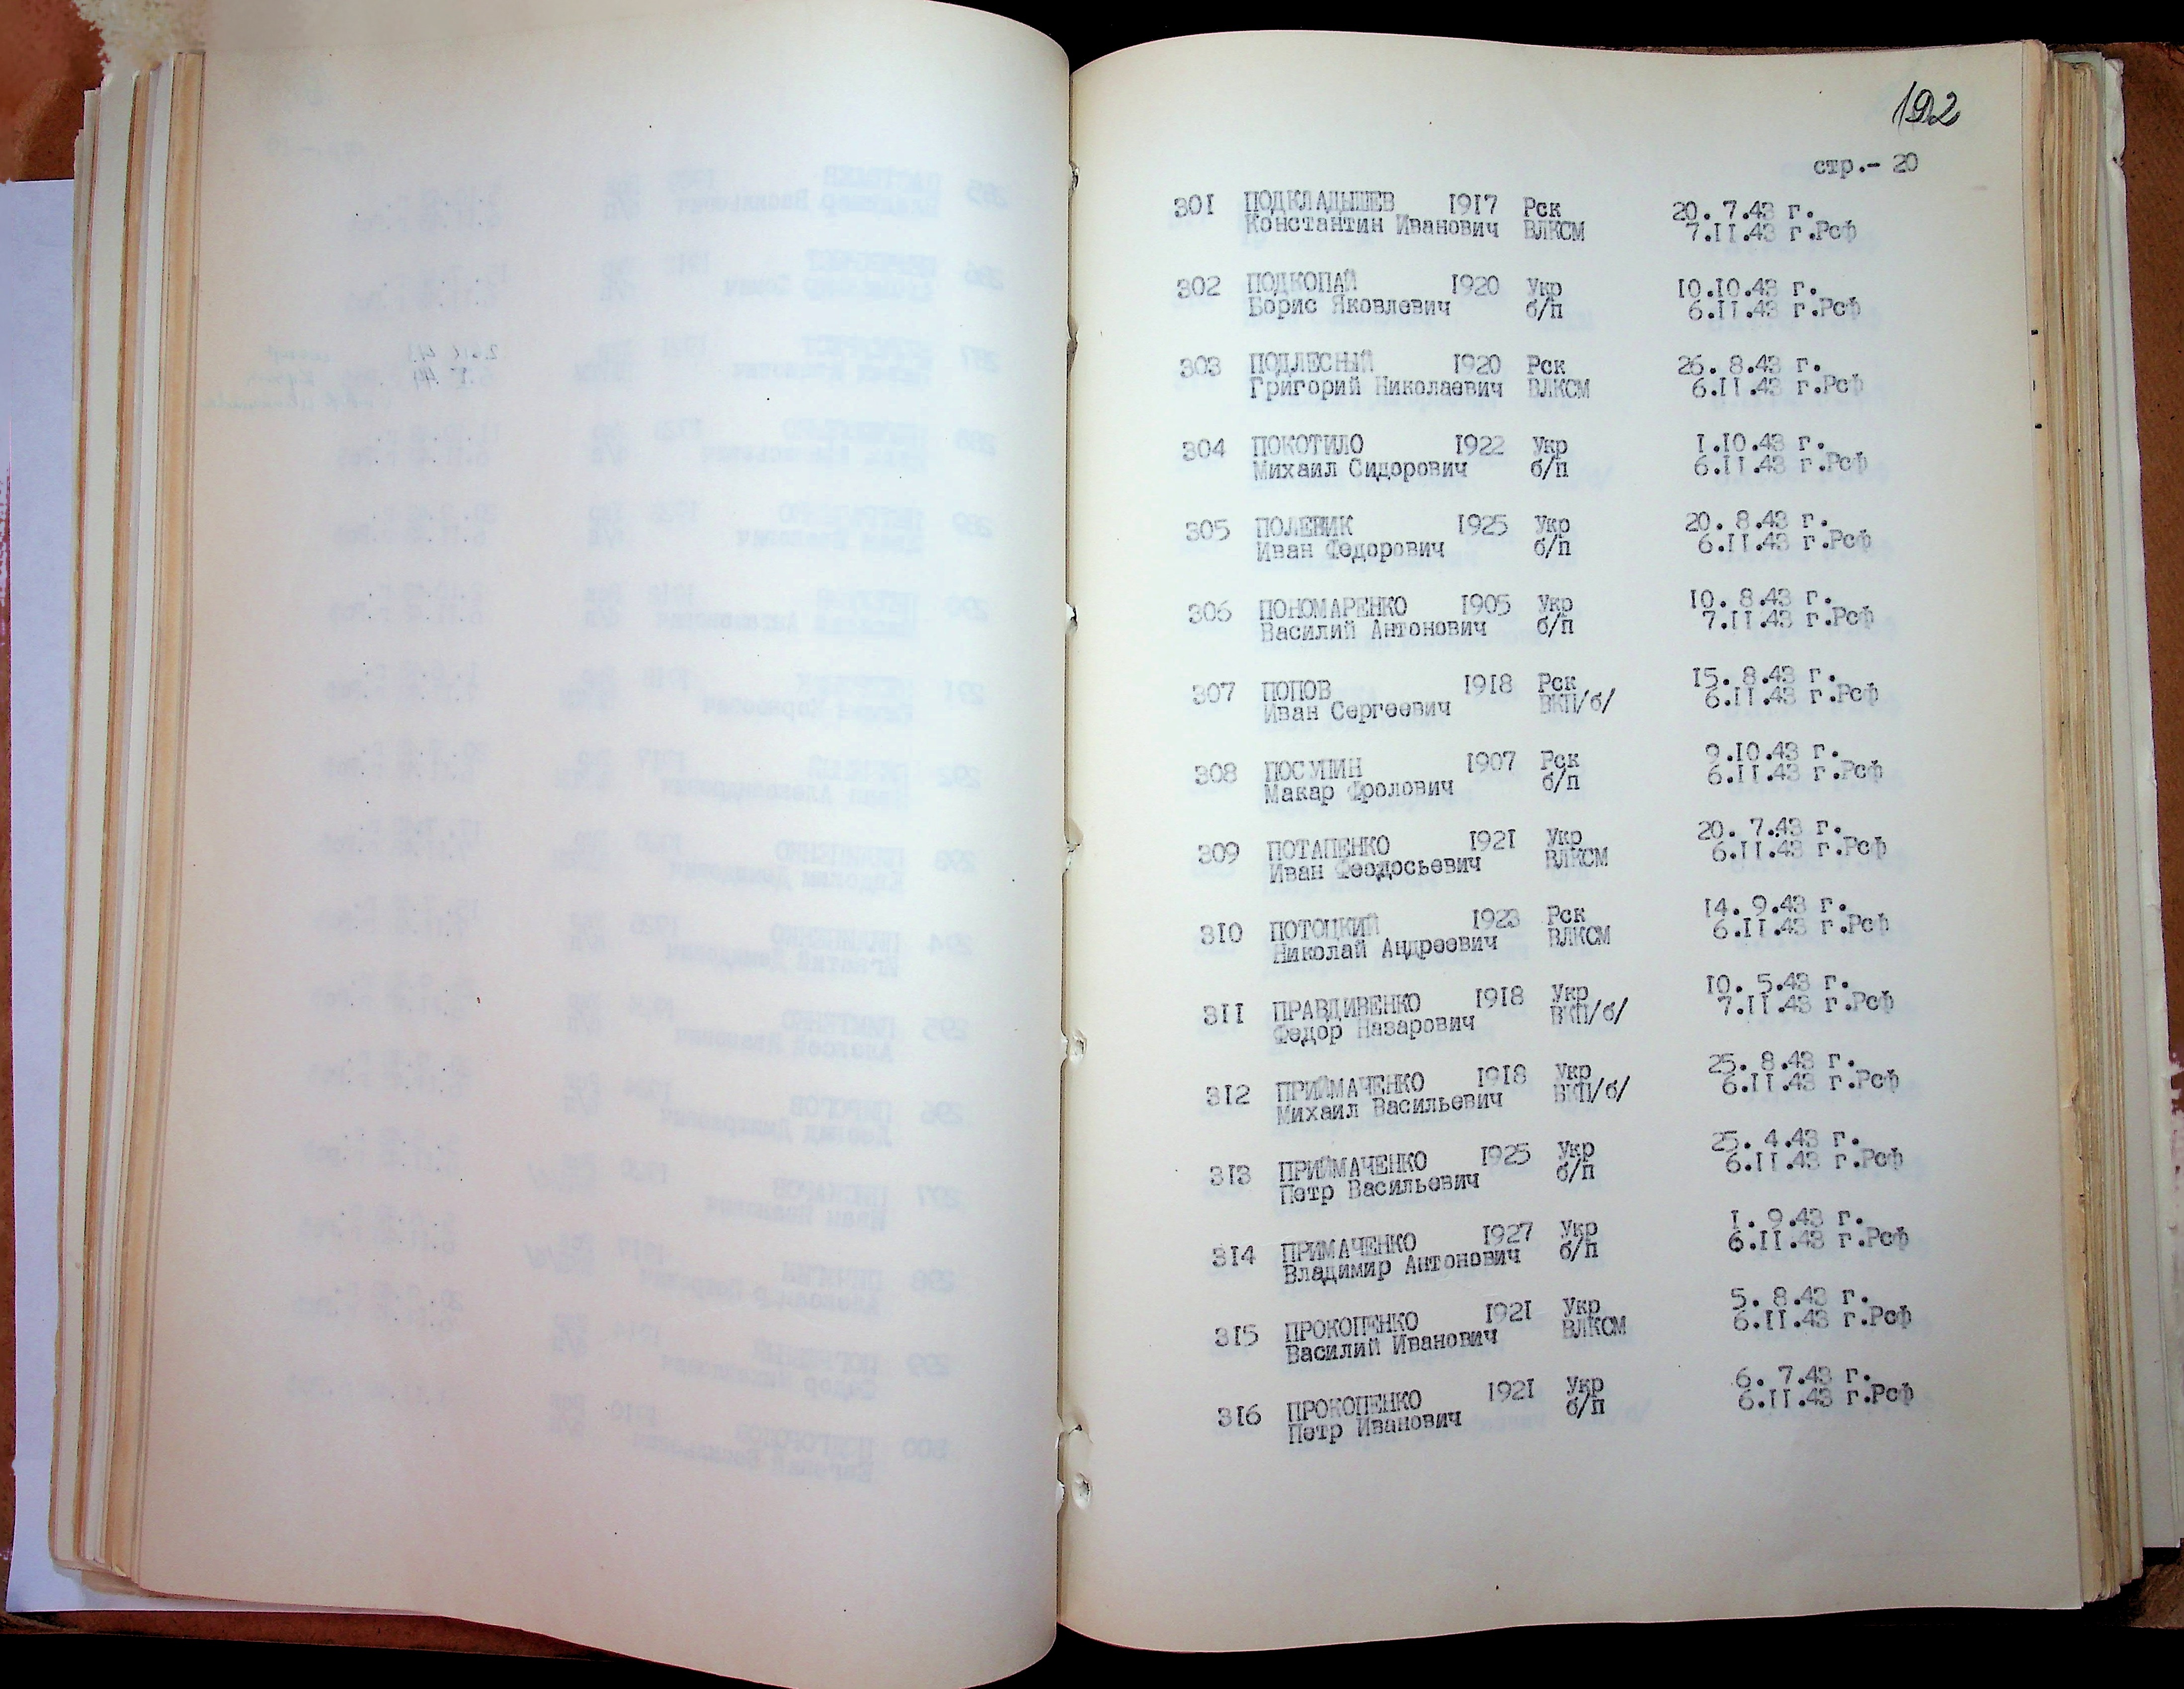 192
стр.- 20
301 ПОДКЛАДЫШЕВ 1917 Рск 20. 7.43 г.
Константин Иванович ВЛКСМ 7.II.43 г.Рсф
302 ПОДКОПАЙ 1920 Укр 10.10.43 г.
Борис Яковлевич б/п 6.II.43 г.Рсф
303 ПОДЛЕСНЫЙ 1920 Рск 26. 8.43 г.
Григорий Николаевич ВЛКСМ 6.II.43 г.Рсф
304 ПОКОТИЛО 1922 Укр I.10.43 г.
Михаил Сидорович б/п 6.II.43 г.Рсф
305 ПОЛЕВИК 1925 Укр 20. 8.43 г.
Иван Федорович б/п 6.II.43 г.Рсф
306 ПОНОМАРЕНКО 1905 Укр 10. 8.43 г.
Василий Антонович б/п 7.II.43 г.Рсф
307 ПОПОВ 1918 Рск 15. 8.43 г.
Иван Сергеевич ВКП/б/ 6.II.43 г.Рсф
308 ПОСУПИН 1907 Рск 9.10.43 г.
Макар Фролович б/п 6.II.43 г.Рсф
309 ПОТАПЕНКО 1921 Укр 20. 7.43 г.
Иван Феодосьевич ВЛКСМ 6.II.43 г.Рсф
310 ПОТОЦКИЙ 1923 Рск 14. 9.43 г.
Николай Андреевич ВЛКСМ 6.II.43 г.Рсф
311 ПРАВДИВЕНКО 1918 Укр 10. 5.43 г.
Федор Назарович ВКП/б/ 7.II.43 г.Рсф
312 ПРИЙМАЧЕНКО 1918 Укр 25. 8.43 г.
Михаил Васильевич ВКП/б/ 6.II.43 г.Рсф
313 ПРИЙМАЧЕНКО 1925 Укр 25. 4.43 г.
Петр Васильевич б/п 6.II.43 г.Рсф
314 ПРИМАЧЕНКО 1927 Укр I. 9.43 г.
Владимир Антонович б/п 6.II.43 г.Рсф
315 ПРОКОПЕНКО 1921 Укр 5. 8.43 г.
Василий Иванович ВЛКСМ 6.II.43 г.Рсф
316 ПРОКОПЕНКО 1921 Укр 6. 7.43 г.
Петр Иванович б/п 6.II.43 г.Рсф